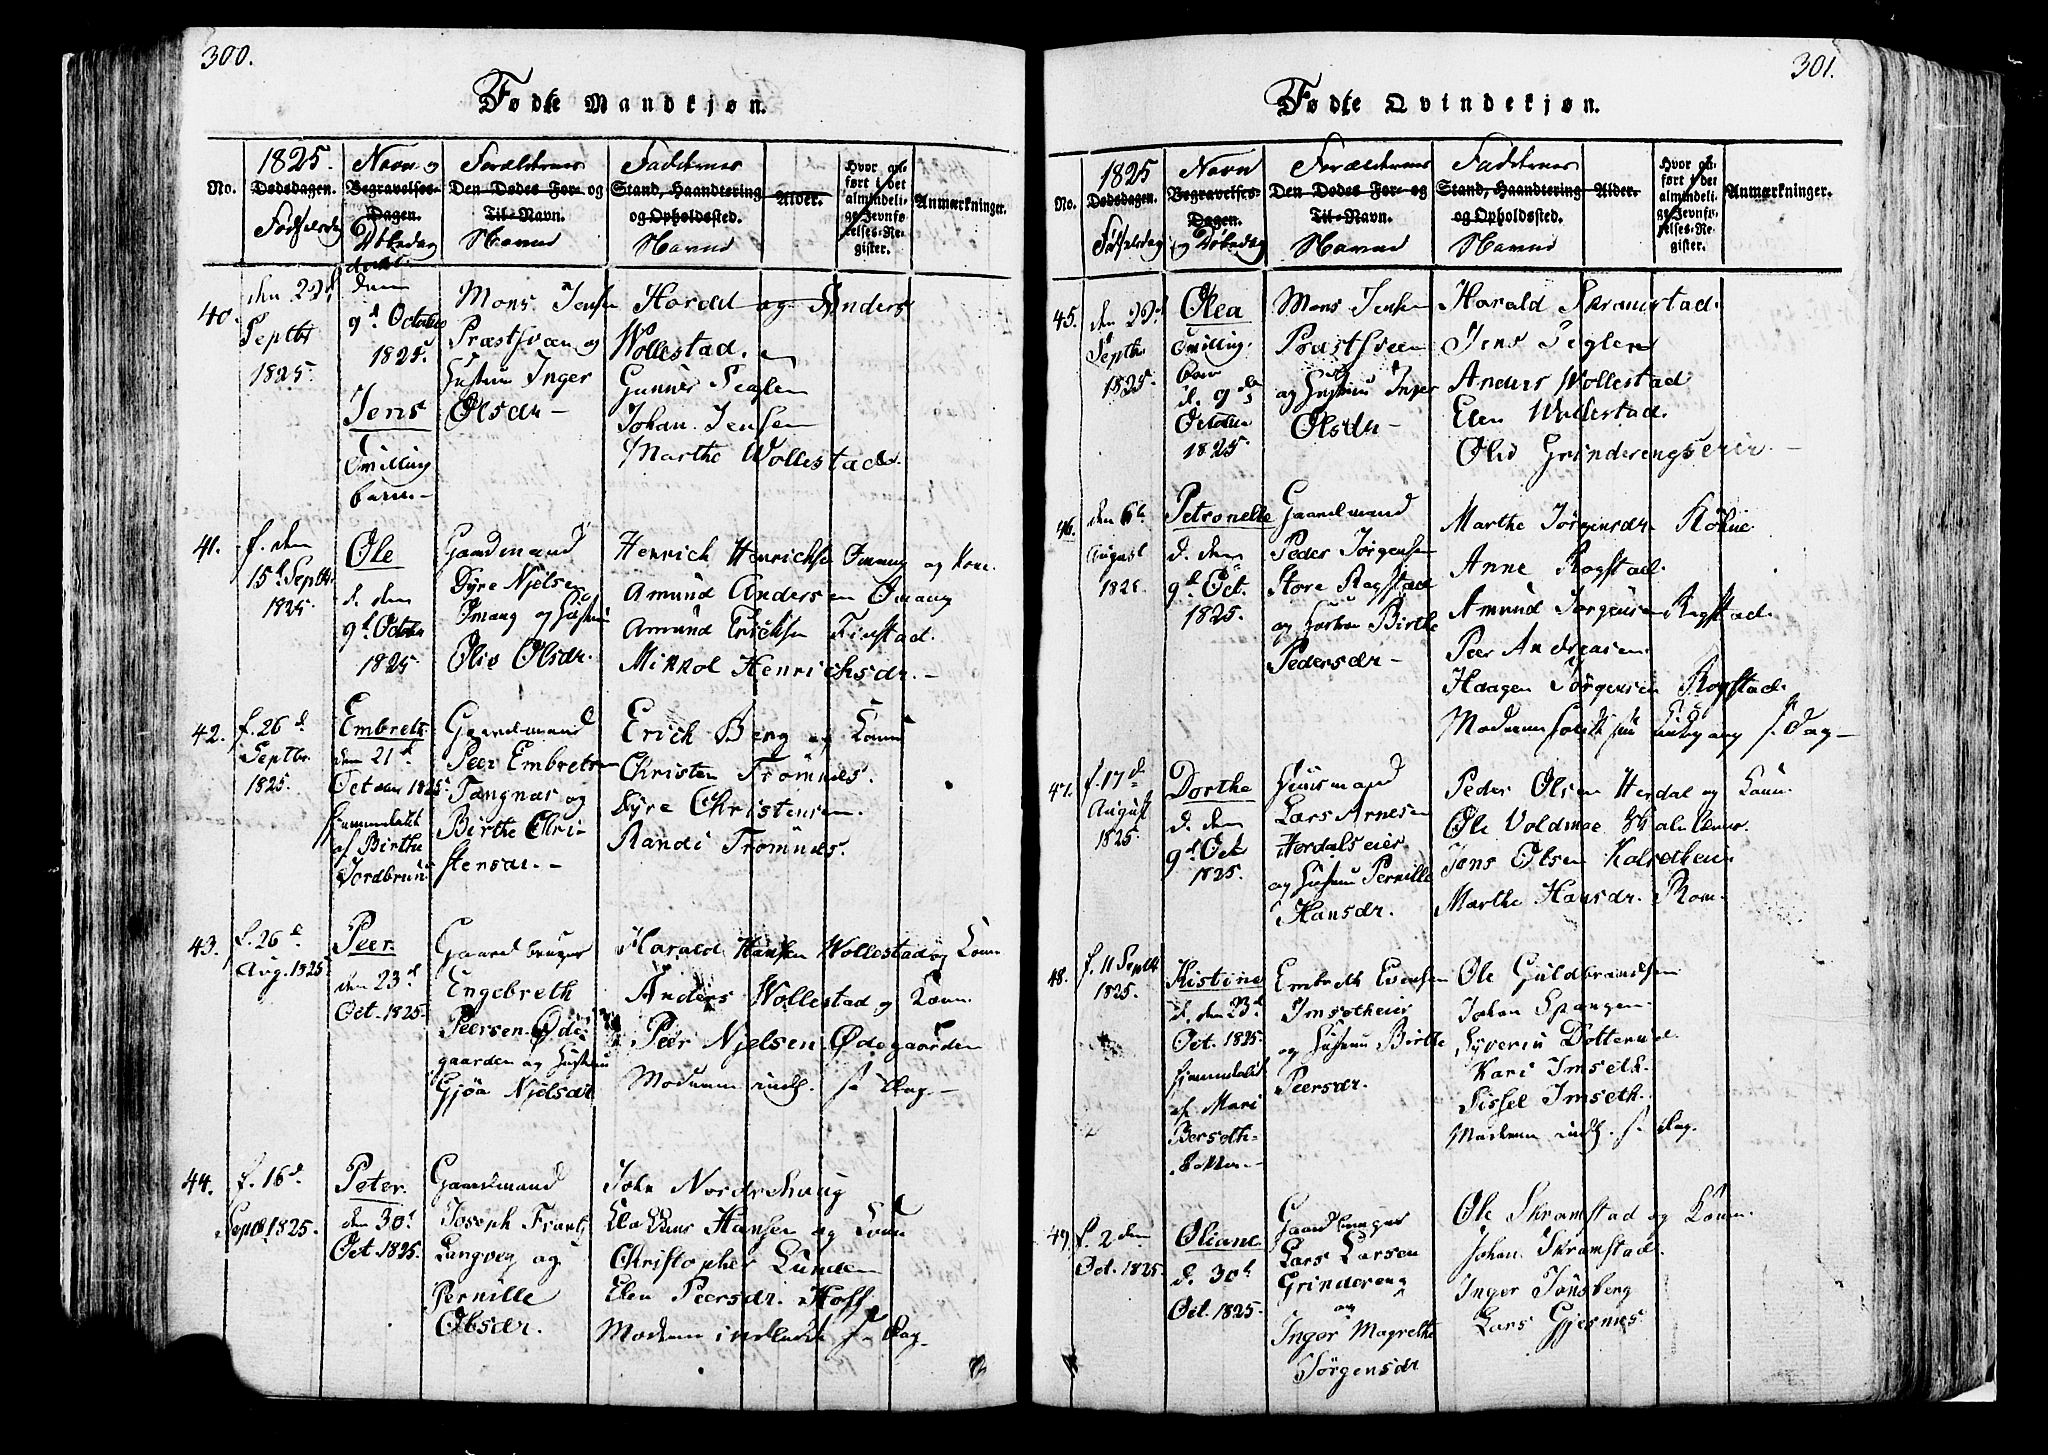 300.
Fødte Mandkjøn.
No.
1825.
Dødsdagen.
Fødselsdag
Navn og
Begravelses-
Dagen.
Døbedag
Forældrenes
Den Dødes For- og
Til-Navn.
Navne
Faddernes
Stand, Haandtering
og Opholdssted.
Navne
Alder.
Hvor an-
ført i det
almindeli-
ge Jevnfø-
relses-Re-
gister.
Anmærkninger.
40.
den 29d
Septbr
1825.
9d October
1825.
Jens
Tvilling
barn.-
Mons Jensen
Præstsveen og
Hustrue Inger
Olsdr -
Harald og Anders
Wollestad.
Gunner Seglen
Johan Jensen
Marthe Wollestad.
41.
f. den
15d Septbr
1825.
Ole
d. den
9d October
1825
Gaardmand
Dyre Njelsen
Omang og Hustrue
Oliv Olsdr.
Henrich Henrichsen Omang og Kone
Amund Andersen Omang
Amund Erichsen Finstad.
Mikkol Henrichsdr.-
42.
f. 26d
Septbr
1825.
Embreth
den 21d
October 1825
hjemmedøbt
af Birthe
Jordbrue
Gaardmand
Peer Embretsen
Tangnæs og
Birthe Chri-
stensdr.-
Erich Berg og Kone
Christen Frømnes.
Dyre Christensen.
Randi Frømnes.
43.
f. 26d
Aug. 1825
Peer
den 23d
Oct. 1825.
Gaardbruger
Engebreth
Peersen Øde-
gaarden og Hustrue
Gjøa Njelsdr
Harald Hansen Wollestad og Kone
Anders Wollestad og Kone.
Peer Njelsen Ødegaarden
Moderen indl. s. Dag.-
44.
f. 16d
Septbr 1825.
Peter
den 30d
Oct. 1825.
Gaardmand
Joseph Frantz
Langveg og
Pernille
Olsdr.
John Nordrehaug
Hansen og Kone
Christopher Lunden
Elen Peersdr. Hoff
Moderen indledet s. Dag.-
301.
Fødte Qvindekjøn.
No.
1825
Dødsdagen.
Fødselsdag
Navn
Begravelses-
Dagen.
og Døbedag
Forældrenes
Den Dødes For- og
Til-Navn.
Navne
Faddernes
Stand, Haandtering
og Opholdssted.
Navne
Alder.
Hvor an-
ført i det
almindeli-
ge Jevnfø-
relses-Re-
gister.
Anmærkninger.
45.
den 29d
Septbr
1825.
Olea
Tvilling-
barn
d. 9de
October
1825.
Mons Jensen
Præstsveen
og Hustrue Inger
Olsdr -
Harald Skramstad.
Jens Seglen
Anders Wollestad
Elen Wollestad.
Oliv Grinderengseier. -
46.
den 6te
August
1825
Petronelle
d. den
9d Oct.
1825.
Gaardmand
Peder Jørgensen
Store Rogstad
og Hustrue Birthe
Pedersdr -
Marthe Jørgensdr
Anne Rogstad.
Amund Jørgensen Rogstad.
Peer Andreasen
Haagen Jørgensen Rogstad.
Moderen holdt sin Kirkegang s. Dag -
47.
f. 17d
August
1825.
Dorthe
d. den
9d Oct
1825.
Huusmand
Lars Arnesen
Hordalseier
og Hustrue Pernille
Hansdr.
Peder Olsen Herdal og Kone
Ole Voldmoe
Jens Olsen Kalsetheie
Marthe Hansdr. Rom.
48.
f. 11 Septbr
1825.
Kistine
d. den 23d
Oct. 1825.
hjemmedøbt
af Mari
Berseth-
Embreth Evensen
Imsetheier
og Hustrue Birthe
Peersdr.
Ole Guldbrandsen
Johan Spangen
Syverin Dotterud.
Kari Imseth.
Sissel Imseth.
Moderen indl. s. Dag.
49.
f. 2den
Oct. 1825.
Oliane
d. 30d
Oct. 1825.
Gaardbruger
Lars Larsen
Grindereng
og
Inger Magrethe
Jørgensdr
Ole Skramstad og Kone.
Johan Skramstad.
Inger Tønsberg
Lars Gjesnes